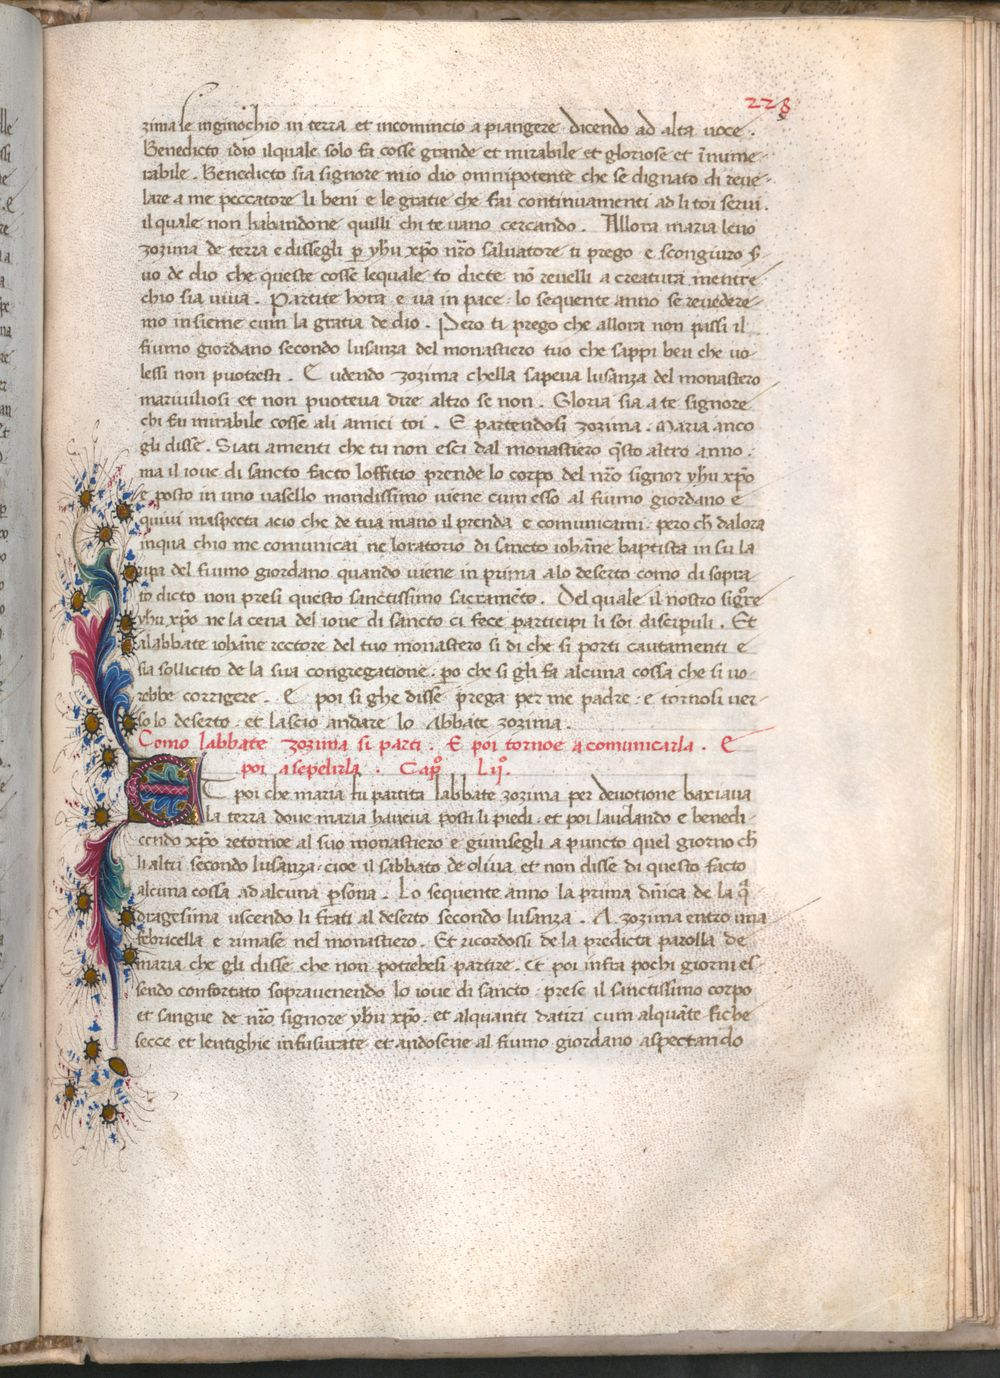 228
zima se inginochio in terra et incomincio a piangere dicendo ad alta uoce .
Benedicto idio ilquale solo fa cosse grande et mirabile et gloriose et īnume-
rabile . Benedicto sia signore mio dio omnipotente che se dignato di reue-
lare a me peccatore li beni e le gratie che fai continuamenti ad li toi serui .
il quale non habandone quilli chi te uano cercando . Allora maria leuo
zozima de terra e dissegli ꝑ yħu xp̄o nr̄o saluatore ti prego e scongiuro
uo de dio che queste cosse lequale to dicte nō reuelli a creatura mentre
chio sia uiua . Partite hora e ua in pace . lo sequente anno se reuedere-
mo insieme cum la gratia de dio . Pero ti prego che allora non passi il
fiumo giordano secondo lusanza del monastiero tuo che sappi ben che uo-
lessi non puotresti . E udendo zozima chella sapeua lusanza del monastero
marauiliosi et non puoteua dire altro se non . Gloria sia a te signore
chi fa mirabile cosse ali amici toi . E partendosi zozima . Maria anco
gli disse . Siati amenti che tu non esci dal monastiero q̄sto altro anno .
ma il ioue di sancto facto loffitio prende lo corpo del nr̄o signor yħu xp̄o
e posto in uno uasello mondissimo uiene cum esso al fiumo giordano e
quiui maspecta acio che de tua mano il prenda e comunicami . pero ch̄ dalora
inqua chio me comunicai ne loratorio di sancto iohāne baptista in su la
ripa del fiumo giordano quando uiene in prima a lo deserto como di sopra
to dicto non presi questo sanctissimo sacramēto . Del quale il nostro sigr̄e
yħu xp̄o ne la cena del ioue di sancto ci fece participi li soi discipuli . Et
alabbate iohāne rectore del tuo monastero si di che si porti cautamenti e
sia sollicito de la sua congregatione . po che si gli fa alcuna cossa che si uo-
rebbe corrigere . E poi si ghe disse prega per me padre . e tornosi uer-
so lo deserto . et lascio andare lo Abbate zozima .
Como labbate zozima si parti . E poi tornoe a comunicarla . E
poi a sepelirla . Cap̊ Lij̊.
E poi che maria fu partita labbate zozima per deuotione baxiaua
la terra doue maria haueua posti li piedi . et poi laudando e benedi-
cendo xp̄o retornoe al suo monastiero e giunsegli a puncto quel giorno ch̄
li altri secondo lusanza . cioe il sabbato de oliua et non disse di questo facto
alcuna cossa ad alcuna ꝑsona . Lo sequente anno la prima dn̄ica de la q̄-
dragesima uscendo li frati al deserto secondo lusanza . A zozima entro una
febricella e rimase nel monastiero . Et ricordossi de la predicta parolla de
maria che gli disse che non potrebesi partire . Et poi infra pochi giorni es-
sendo confortato soprauenendo lo ioue di sancto . prese il sanctissimo corpo
et sangue de nr̄o signore yħu xp̄o . et alquanti datiri cum alquāte fiche
secce et lentighie infusurate et andosene al fiumo giordano aspectando